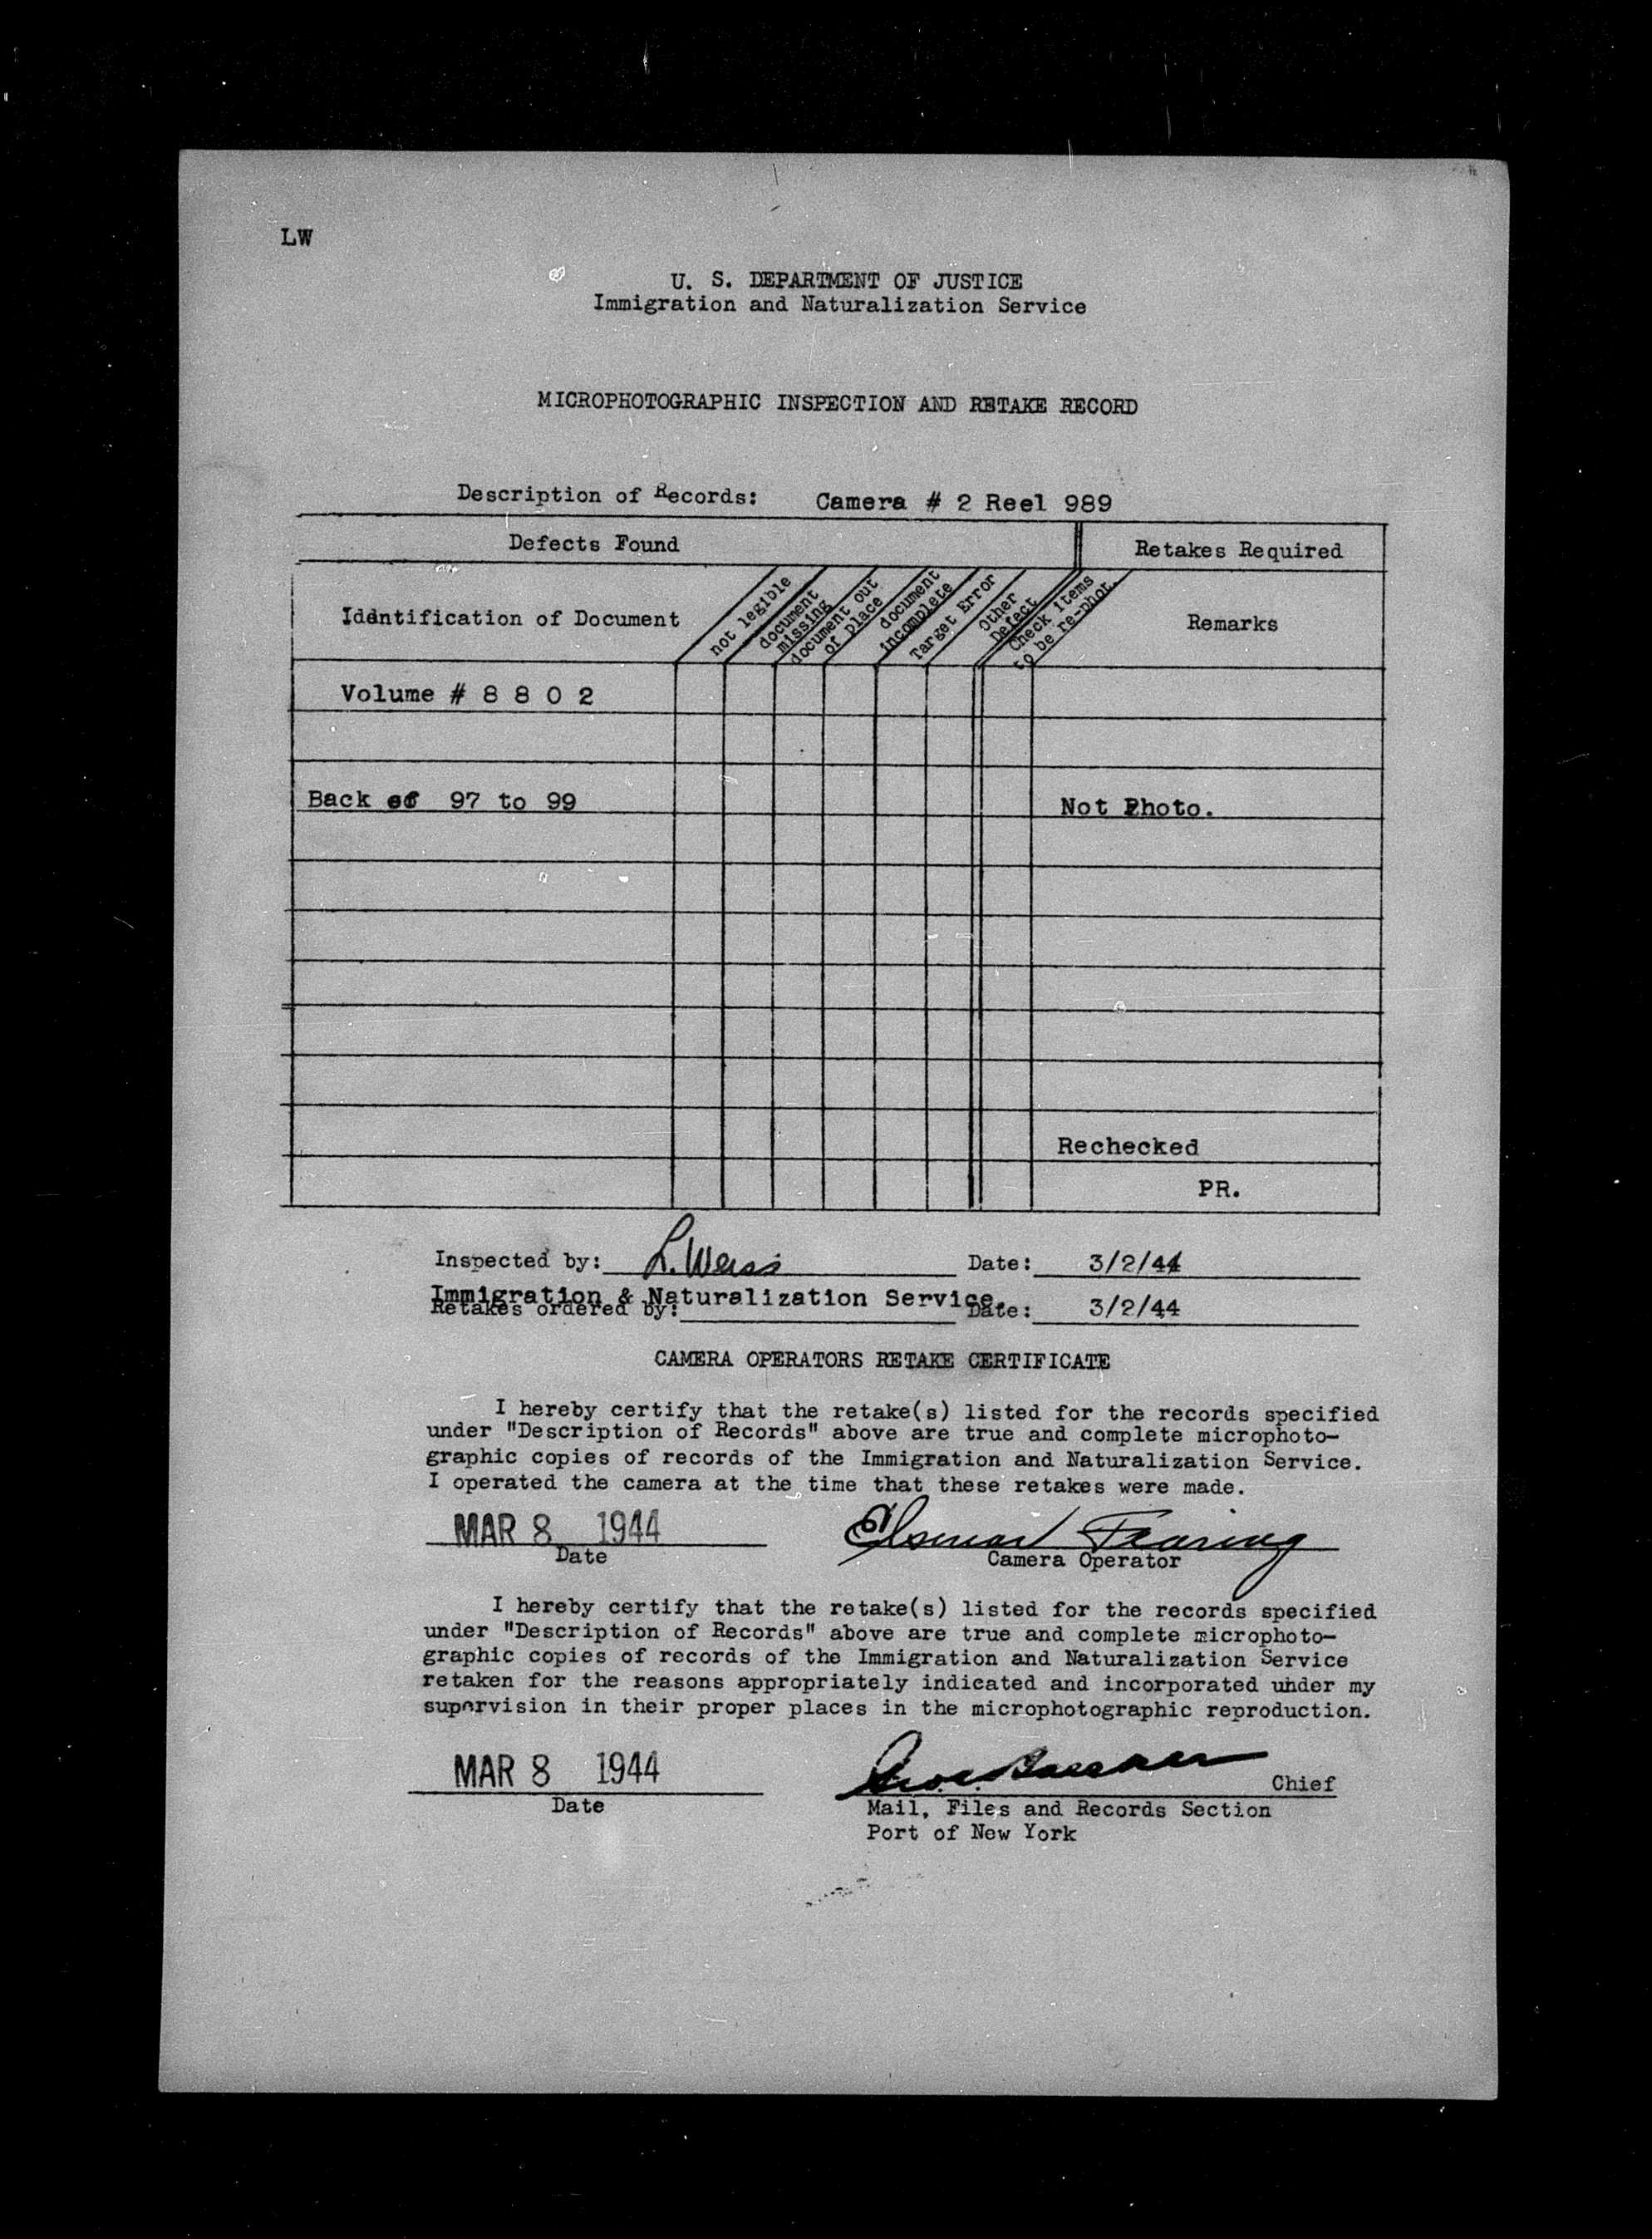 LW
U. S. DEPARTMENT OF JUSTICE
Immigration and Naturalization Service
MICROPHOTOGRAPHIC INSPECTION AND RETAKE RECORD
Description of Records: Camera # 2 Reel 989
Defects Found
Retakes Required
Iddntification of Document
not legible
document missing
document out of place
document incomplete
Target Error
Other Defect
Check items to be re-phot.
Remarks
Volume # 8 8 0 2
Back of 97 to 99
Not Photo.
Rechecked
PR.
Inspected by: L. Weiss Date: 3/2/44
Immigration & Naturalization Service.
Retakes ordered by: Date: 3/2/44
CAMERA OPERATORS RETAKE CERTIFICATE
I hereby certify that the retake(s) listed for the records specified
under "Description of Records" above are true and complete microphoto-
graphic copies of records of the Immigration and Naturalization Service.
I operated the camera at the time that these retakes were made.
MAR 8 1944
Fearing
Date
Camera Operator
I hereby certify that the retake(s) listed for the records specified
under "Description of Records" above are true and complete microphoto-
graphic copies of records of the Immigration and Naturalization Service
retaken for the reasons appropriately indicated and incorporated under my
supervision in their proper places in the microphotographic reproduction.
MAR 8 1944
Chief
Date
Mail, Files and Records Section
Port of New York